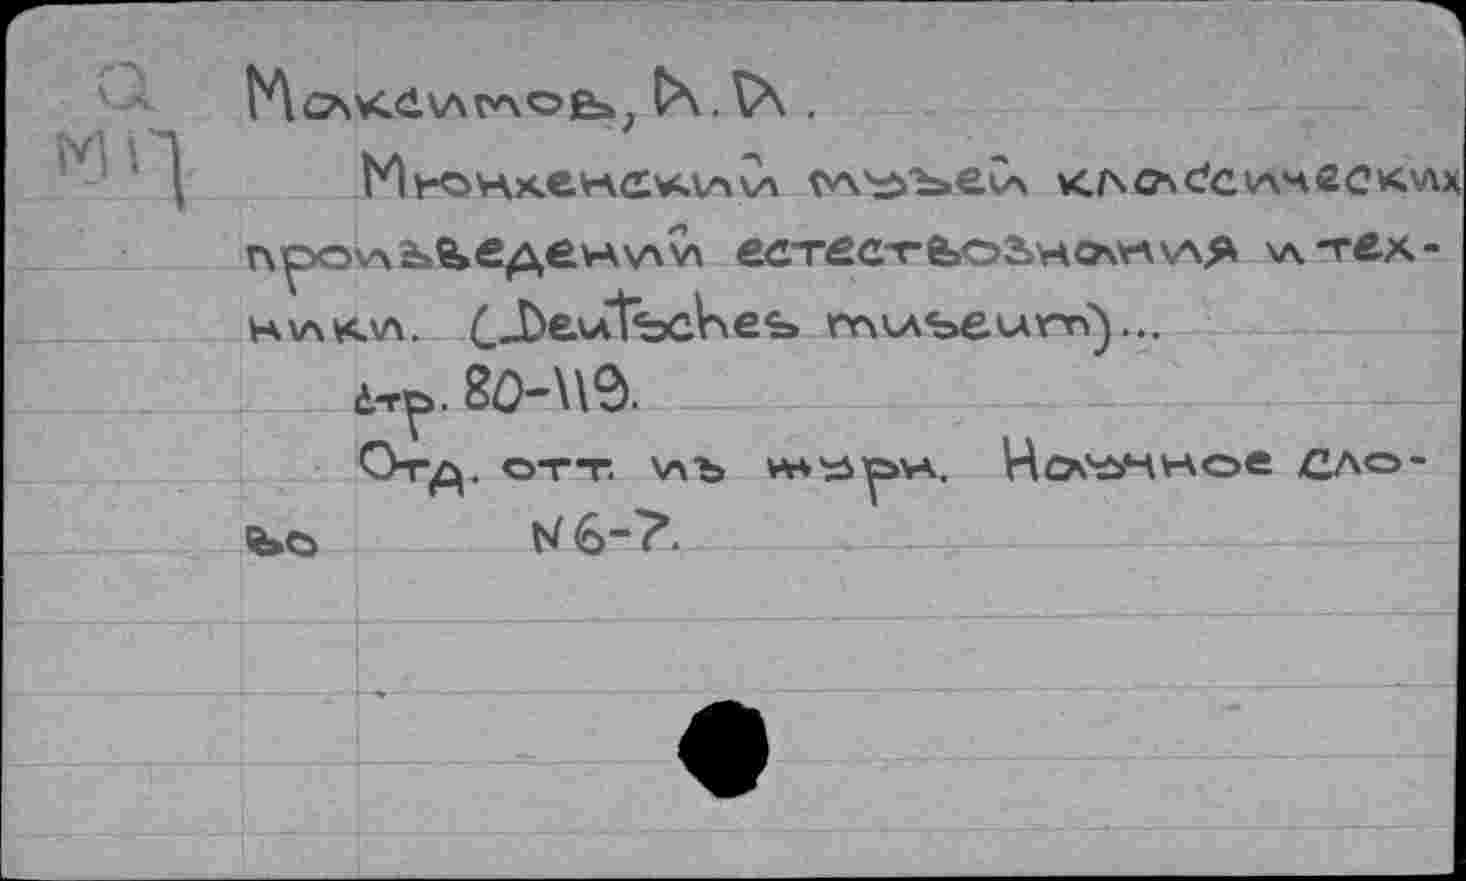 Максимов, А. А.
Мюнхенский музъей классических
произведений естествознания и тех-
ники. (Deutsches museum)...
стр. 80-119.
Отд. отт. изъ журн. Научное сло-
во № 6-7.